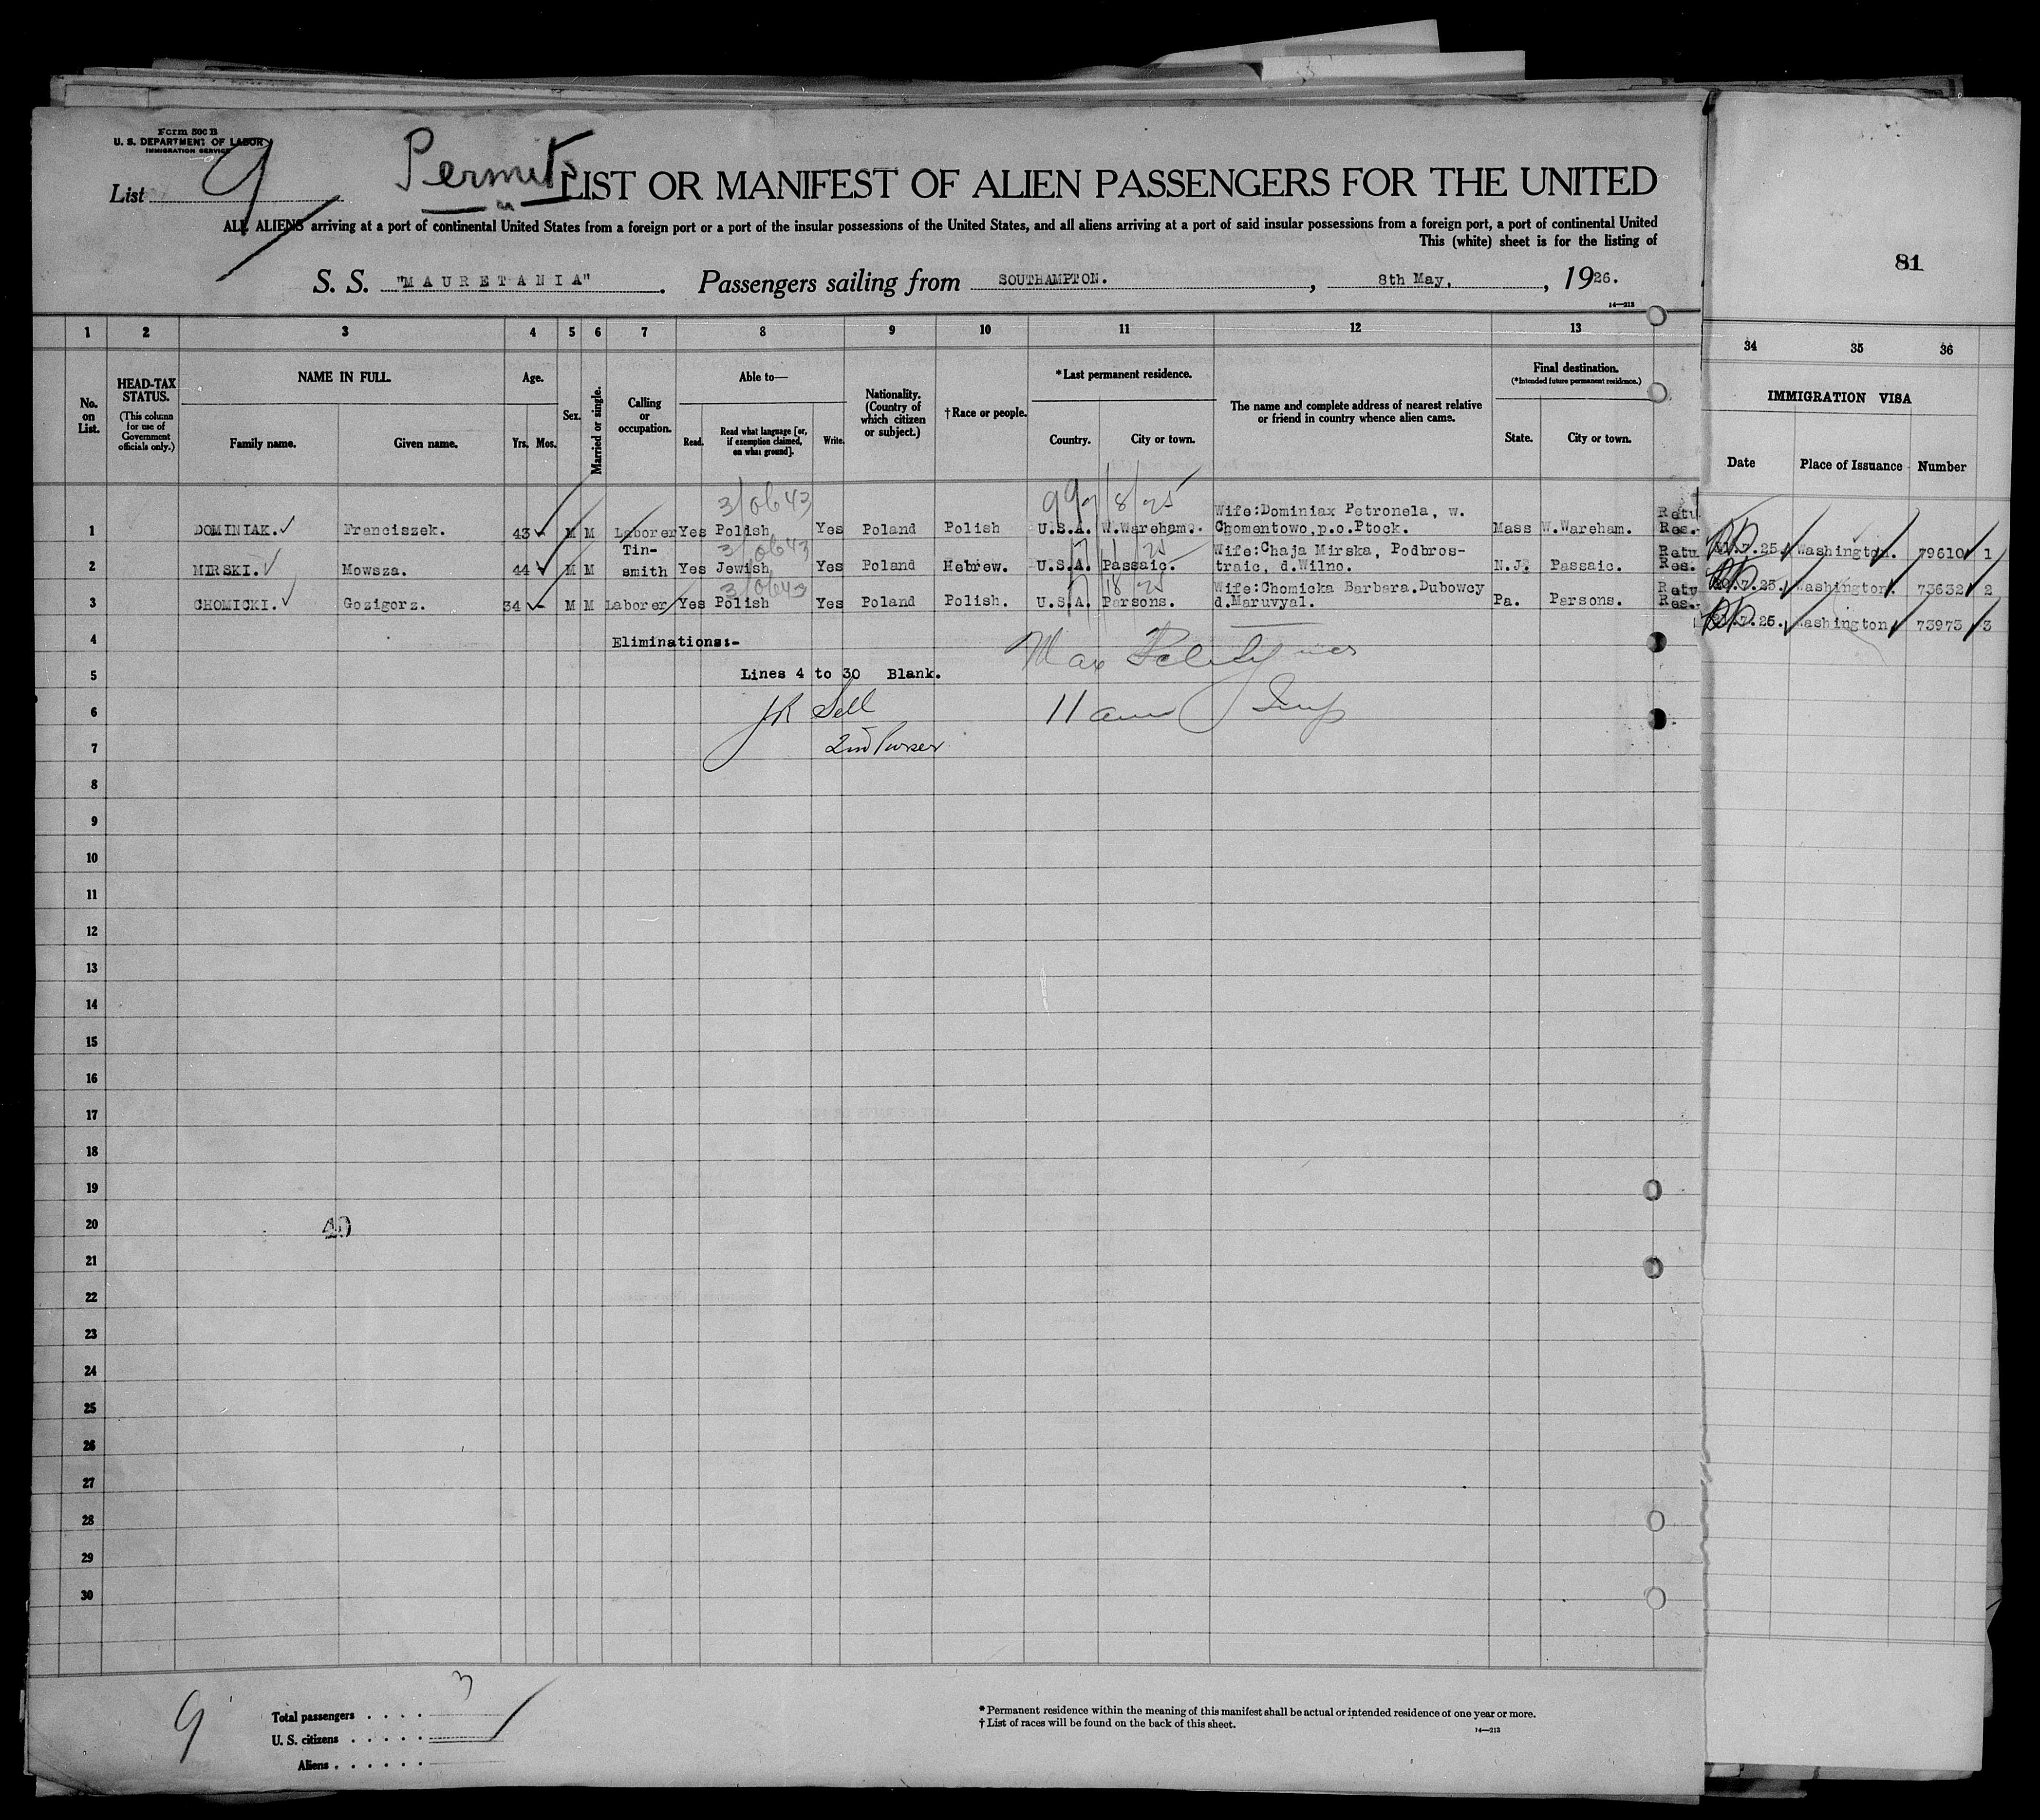 Form 500 B
U. S. DEPARTMENT OF LABOR
IMMIGRATION SERVICE
List 9
Permits
LIST OR MANIFEST OF ALIEN PASSENGERS FOR THE UNITED
ALL ALIENS arriving at a port of continental United States from a foreign port or a port of the insular possessions of the United States, and all aliens arriving at a port of said insular possessions from a foreign port, a port of continental United
This (white) sheet is for the listing of
S. S. "MAURETANIA". Passengers sailing from SOUTHAMPTON. , 8th May, , 1926.
14—213
81
1 2 3 4 5 6 7 8 9 10 11 12 13
34 35 36
No. on List.
HEAD-TAX STATUS.
(This column for use of Government officials only.)
NAME IN FULL.
Family name. Given name.
Age.
Yrs. Mos.
Sex.
Married or single.
Calling or occupation.
Able to—
Read. Read what language [or, if exemption claimed, on what ground]. Write.
Nationality. (Country of which citizen or subject.)
†Race or people.
*Last permanent residence.
Country. City or town.
The name and complete address of nearest relative or friend in country whence alien came.
Final destination.
(*Intended future permanent residence.)
State. City or town.
IMMIGRATION VISA
Date Place of Issuance Number
3/0643 7/8/25
1 DOMINIAK. Franciszek. 43 M M Laborer Yes Polish Yes Poland Polish U.S.A. W.Wareham. Wife:Dominiax Petronela, w. Chomentowo,p.o.Ptock. Mass W.Wareham. Retu Res.
3/0643
2 MIRSKI. Mowsza. 44 M M Tin-smith Yes Jewish Yes Poland Hebrew. U.S.A. Passaic. Wife:Chaja Mirska, Podbros-traic, d.Wilno. N.J. Passaic. Retu Res.
3/0643
3 CHOMICKI. Gozigorz. 34 M M Laborer Yes Polish Yes Poland Polish. U.S.A. Parsons. Wife:Chomicka Barbara,Dubowcy d.Maruvyal. Pa. Parsons. Retu Res.
.7.25. Washington. 79610 1
.7.25. Washington. 73632 2
.7.25. Washington 73973 3
4 Eliminations:-
5 Lines 4 to 30 Blank.
Max
6 JR Sell
11 am Insp
7 2nd Purser
8
9
10
11
12
13
14
15
16
17
18
19
20
40
21
22
23
24
25
26
27
28
29
30
9
Total passengers . . . . 3
U. S. citizens . . . . .
Aliens . . . . . .
* Permanent residence within the meaning of this manifest shall be actual or intended residence of one year or more.
† List of races will be found on the back of this sheet.
14—213